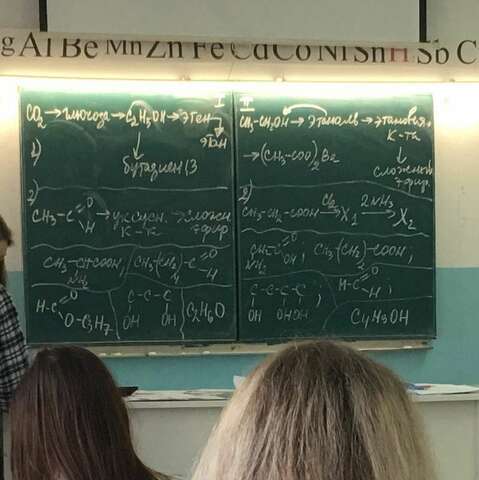 g Al Be Mn Zn Fe Cd Co Ni Sn H Sb C
I
CO2 → глюкоза → C2H5OH → этен
1)
этан
бутадиен 1,3
2)
CH3-C O H → уксусн. к-та → сложн. эфир
CH3-CH-COOH, NH2
CH3-(CH2)4-C O H
H-C O O-C3H7
C-C-C OH OH
C2H6O
II
CH3-CH2OH → Этаналь → этановая к-та
сложн. эфир.
→ (CH3-COO)2Ba
2)
CH3-CH2-COOH Cl2 → X1 2NH3 → X2
CH2-C O OH, NH2
CH3-(CH2)-COOH,
C-C-C-C, OH OH OH
H-C O H,
C4H9OH